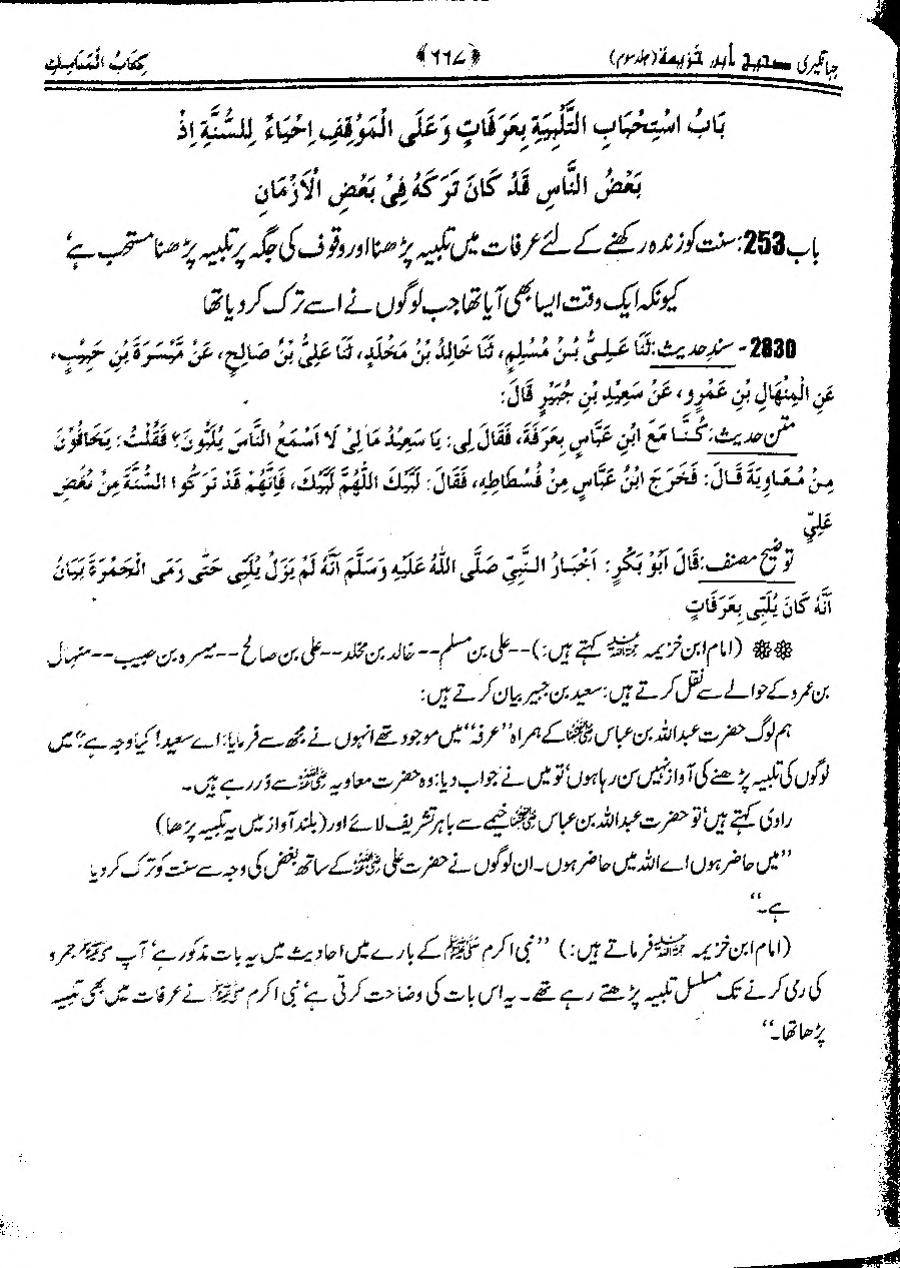 جہانگیری صحیح ابن خزیمة (جلد سوم)
﴿۶۶۷﴾
كِتَابُ الْمَنَاسِكِ
بَابُ اسْتِحْبَابِ التَّلْبِيَةِ بِعَرَفَاتٍ وَعَلَى الْمَوْقِفِ اِحْيَاءً لِلسُّنَّةِ اِذْ
بَعْضُ النَّاسِ قَدْ كَانَ تَرَكَهُ فِيْ بَعْضِ الْاَزْمَانِ
باب 253: سنت کو زندہ رکھنے کے لئے عرفات میں تلبیہ پڑھنا اور وقوف کی جگہ پر تلبیہ پڑھنا مستحب ہے'
کیونکہ ایک وقت ایسا بھی آیا تھا جب لوگوں نے اسے ترک کر دیا تھا
2830 - سندِ حدیث: ثَنَا عَلِيُّ بْنُ مُسْلِمٍ، ثَنَا خَالِدُ بْنُ مَخْلَدٍ، ثَنَا عَلِيُّ بْنُ صَالِحٍ، عَنْ مَيْسَرَةَ بْنِ حَبِيْبٍ،
عَنِ الْمِنْهَالِ بْنِ عَمْرٍو، عَنْ سَعِيْدِ بْنِ جُبَيْرٍ قَالَ:
متنِ حدیث: كُنَّا مَعَ ابْنِ عَبَّاسٍ بِعَرَفَةَ، فَقَالَ لِي: يَا سَعِيْدُ مَا لِيْ لَا اَسْمَعُ النَّاسَ يُلَبُّوْنَ؟ فَقُلْتُ: يَخَافُوْنَ
مِنْ مُعَاوِيَةَ قَالَ: فَخَرَجَ ابْنُ عَبَّاسٍ مِنْ فُسْطَاطِهِ، فَقَالَ: لَبَّيْكَ اللّٰهُمَّ لَبَّيْكَ، فَاِنَّهُمْ قَدْ تَرَكُوا السُّنَّةَ مِنْ بُغْضِ
عَلِيٍّ
توضیح مصنف: قَالَ اَبُوْ بَكْرٍ: اَخْبَارُ النَّبِيِّ صَلَّى اللّٰهُ عَلَيْهِ وَسَلَّمَ اَنَّهُ لَمْ يَزَلْ يُلَبِّي حَتّٰى رَمَى الْجَمْرَةَ بَيَانُ
اَنَّهُ كَانَ يُلَبِّي بِعَرَفَاتٍ
❁❁ (امام ابن خزیمہ رحمۃ اللہ علیہ کہتے ہیں:) -- علی بن مسلم -- خالد بن مخلد -- علی بن صالح -- میسرہ بن حبیب -- منہال
بن عمرو کے حوالے سے نقل کرتے ہیں: سعید بن جبیر بیان کرتے ہیں:
ہم لوگ حضرت عبداللہ بن عباس رضی اللہ عنہما کے ہمراہ ''عرفہ'' میں موجود تھے انہوں نے مجھ سے فرمایا: اے سعید! کیا وجہ ہے؟ میں
لوگوں کی تلبیہ پڑھنے کی آواز نہیں سن رہا ہوں' تو میں نے جواب دیا: وہ حضرت معاویہ رضی اللہ عنہ سے ڈر رہے ہیں۔
راوی کہتے ہیں' تو حضرت عبداللہ بن عباس رضی اللہ عنہما خیمے سے باہر تشریف لائے اور (بلند آواز میں یہ تلبیہ پڑھا)
''میں حاضر ہوں اے اللہ میں حاضر ہوں۔ ان لوگوں نے حضرت علی رضی اللہ عنہ کے ساتھ بغض کی وجہ سے سنت کو ترک کر دیا
ہے۔''
(امام ابن خزیمہ رحمۃ اللہ علیہ فرماتے ہیں:) ''نبی اکرم ﷺ کے بارے میں احادیث میں یہ بات مذکور ہے' آپ ﷺ جمرہ
کی رمی کرنے تک مسلسل تلبیہ پڑھتے رہے تھے۔ یہ اس بات کی وضاحت کرتی ہے' نبی اکرم ﷺ نے عرفات میں بھی تلبیہ
پڑھا تھا۔''